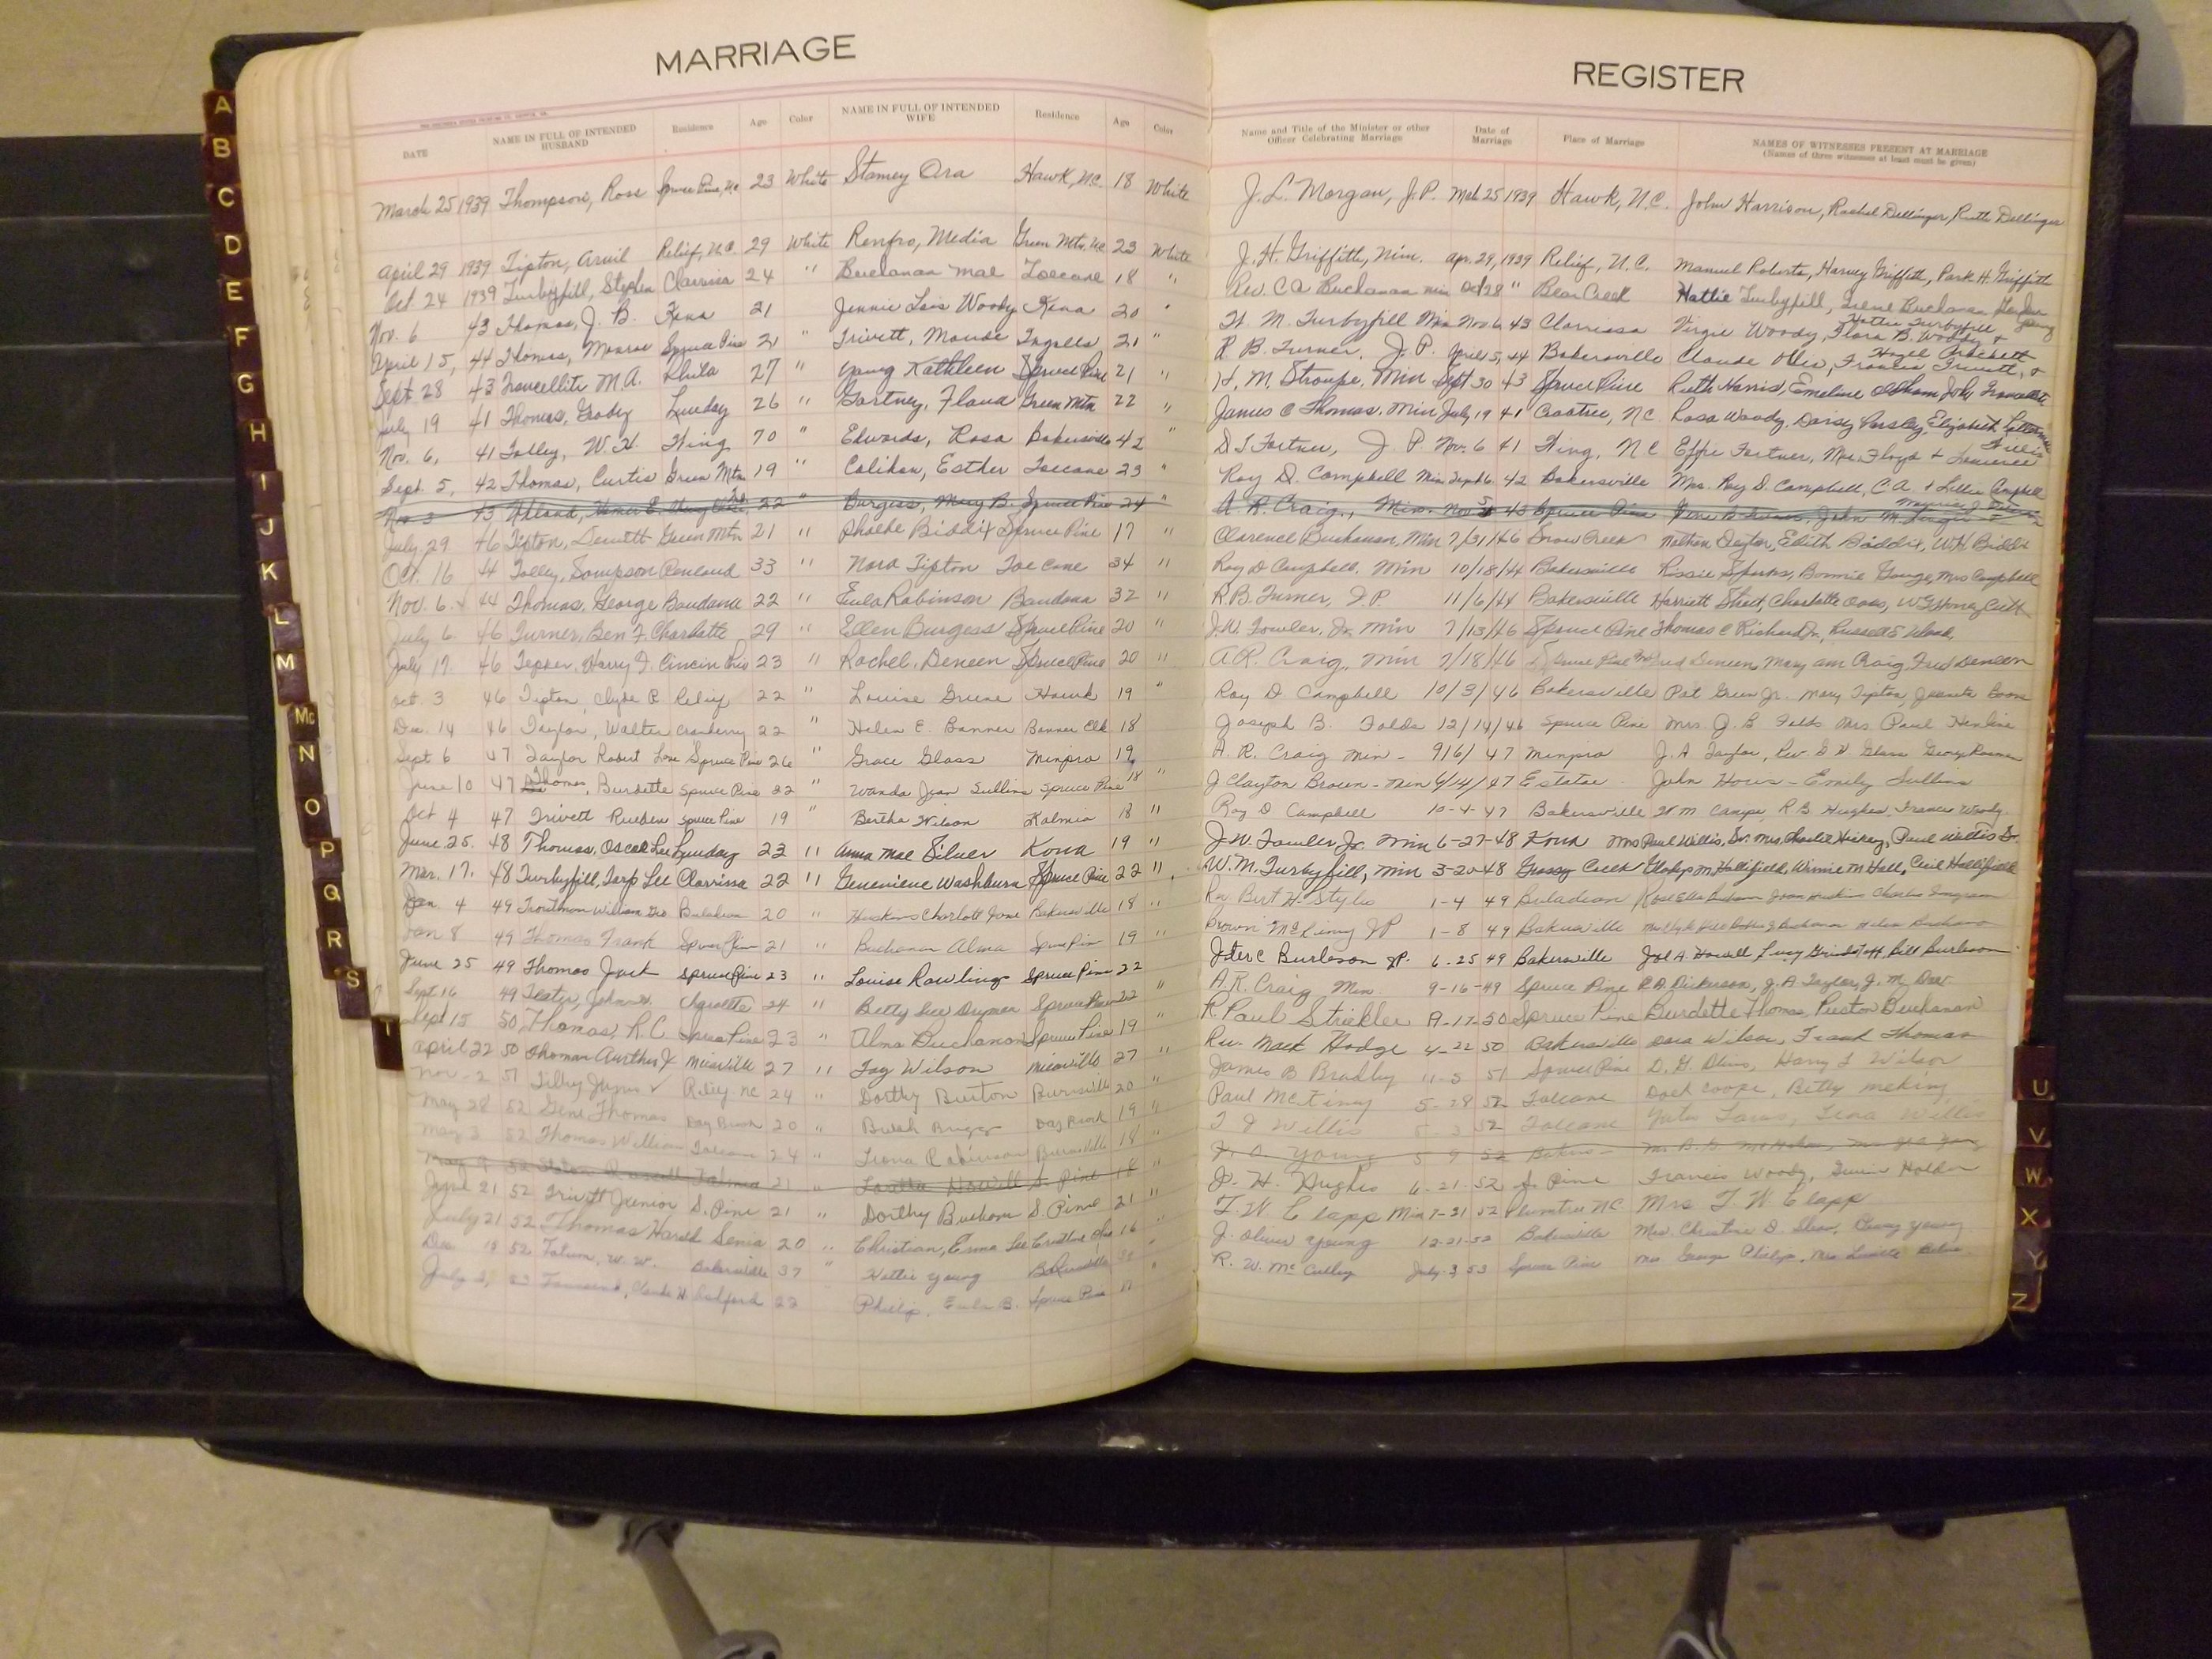 MARRIAGE REGISTER
DATE NAME IN FULL OF INTENDED HUSBAND Residence Age Color NAME IN FULL OF INTENDED WIFE Residence Age Color Name and Title of the Minister or other Officer Celebrating Marriage Date of Marriage Place of Marriage NAMES OF WITNESSES PRESENT AT MARRIAGE (Names of three witnesses at least must be given)
March 25 1939 Thompson, Rose Spruce Pine, N.C. 23 White Stamey Ora Hawk, N.C. 18 White J. L. Morgan, J.P. Mch 25 1939 Hawk, N.C. John Harrison, Rachel Dellinger, Ruth Dellinger
April 29 1939 Tipton, Arvil Relief, N.C. 29 White Renfro, Media Green Mtn, N.C. 23 White J. H. Griffith, Min. Apr. 29, 1939 Relief, N.C. Manuel Roberts, Harvey Griffith, Park H. Griffith
Oct 24 1939 Turbyfill, Stephen Clarrissa 24 " Buchanan Mae Toecane 18 " Rev. C A Buchanan Min Oct 28 " Bear Creek Hattie Turbyfill, Irene Buchanan
Nov. 6 43 Thomas, J. B. Kona 21 Jennie Lois Woody Kona 20 " W. M. Turbyfill Min Nov. 6 43 Clarrissa Virgie Woody, Flora B. Woody & Hattie Turbyfill
April 15, 44 Thomas, Monroe Spruce Pine 21 " Trivett, Maude Ingalls 21 " R B. Turner, J. P. April 5, 44 Bakersville Claude Ollis, Francis Trivett, &
Sept. 28 43 Francellite M.A. 27 " Young Kathleen Spruce Pine 21 " H. M. Stroupe, Min Sept 30 43 Spruce Pine Ruth Harris, Emeline Oldham, John
July 19 41 Thomas, Grady Lunday 26 " Gortney, Flava Green Mtn 22 " James C Thomas, Min July 19 41 Crabtree, NC Rosa Woody, Daisy Presley, Elizabeth
Nov. 6, 41 Tolley, W. H. Wing 70 " Edwards, Rosa Bakersville 42 " D. T. Fortner, J. P. Nov. 6 41 Wing, NC Effie Fortner, Mrs. Floyd &
Sept. 5, 42 Thomas, Curtis Green Mtn 19 " Calihan, Esther Toecane 23 " Roy D. Campbell Min Sept 6 42 Bakersville Mrs. Roy D. Campbell, C.A. & Lillie Campbell
Nov 3 43 22 " Burgess, Mary B. Spruce Pine 24 " A. R. Craig, Min. Nov 5 43 Spruce Pine
July 29 46 Tipton, Dewitt Green Mtn 21 " Phoebe Biddix Spruce Pine 17 " Clarence Buchanan, Min 7/31/46 Snow Creek Nathan Deyton, Edith Biddix, W.H. Biddix
Oct. 16 44 Tolley, Sampson Penland 33 " Nora Tipton Toe Cane 34 " Roy D Campbell, Min 10/18/44 Bakersville Rissie Sparks, Bonnie Gouge, Mrs Campbell
Nov. 6. 44 Thomas, George Bandana 22 " Eula Robinson Bandana 32 " R B. Turner, J P. 11/6/44 Bakersville Harriett Street, Charlotte
July 6 46 Turner, Ben F. Charlotte 29 " Ellen Burgess Spruce Pine 20 " J.W. Fowler, Jr. Min 7/13/46 Spruce Pine Thomas C Richard Jr., Russell
July 17 46 Tepper, Harry J. 23 " Rachel, Deneen Spruce Pine 20 " A.R. Craig, Min 7/18/46 Spruce Pine Deneen, Mary Ann Craig, Fred Deneen
Oct. 3 46 Tipton, Clyde R. Relief 22 " Louise Greene Hawk 19 " Roy D. Campbell 10/3/46 Bakersville Pat Green Jr. Mary Tipton, Juanita Boone
Dec. 14 46 Taylor, Walter Cranberry 22 " Helen E. Banner Banner Elk 18 Joseph B. Folds 12/14/46 Spruce Pine Mrs. J. B Folds Mrs Paul Henline
Sept 6 47 Taylor Robert Love Spruce Pine 26 " Grace Glass Minpro 19 A. R. Craig Min - 9/6/47 Minpro J. A Taylor, Rev D. W. Glass
June 10 47 Thomas, Burdette Spruce Pine 22 " Wanda Jean Sullins Spruce Pine 18 " J Clayton Brown - Min 6/14/47 Estatoe John Hows - Emily Sullins
Oct 4 47 Trivett Rueben Spruce Pine 19 " Bertha Wilson Kalmia 18 " Roy D Campbell 10-4-47 Bakersville W. M. Camps, R B. Hughes, Francis Woody
June 25. 48 Thomas, Oscar Lee Lunday 23 " Anna Mae Silver Kona 19 " J.W. Fowler Jr. Min 6-27-48 Kona Mrs Paul Willis, Sr. Mrs. Charlie Hickey, Paul Willis Sr.
Mar. 17. 48 Turbyfill, Tarp Lee Clarrissa 22 " Genevieve Washburn Spruce Pine 22 " W.M. Turbyfill, Min 3-20-48 Grassy Creek Gladys M Hollifield, Winnie M Hall, Cecil Hollifield
Jan. 4 49 Troutman William Geo Buladean 20 " Huskins Charlott June Bakersville 18 " Rev Burt H. Styles 1-4 49 Buladean
Jan 8 49 Thomas Frank Spruce Pine 21 " Buchanan Alma Spruce Pine 19 " Brown McKinney JP 1-8 49 Bakersville
June 25 49 Thomas Jack Spruce Pine 23 " Louise Rawlings Spruce Pine 22 Jeter C Burleson JP. 6-25 49 Bakersville Joe A. Howell, Lucy Grindstaff, Bill Burleson
Sept. 16 49 Teater, John H. Charlotte 24 " Betty Sue Drymon Spruce Pine 22 " A.R. Craig Min. 9-16-49 Spruce Pine R.D. Dickerson, J. A Taylor, J. M.
Sept 15 50 Thomas, R.C Spruce Pine 23 " Alma Buchanan Spruce Pine 19 " R. Paul Strickler 9-17-50 Spruce Pine Burdette Thomas, Preston Buchanan
April 22 50 Thomas Aurther J. 27 " Fay Wilson 27 " Rev. Mack Hodge 4-22 50 Bakersville Dora Wilson, Frank Thomas
Nov-2 51 Tilley James 24 " Dorthy Burton Burnsville 20 " James B Bradley 11-3 51 Spruce Pine D. G. Harry L Wilson
May 28 52 Gene Thomas Day Brook 20 " Day Brook 19 " Paul McKinny 5-28 52 Toecane
May 3 52 Thomas William Toecane 24 " Robinson Burnsville 18 " T J Willis 5-3 52 Toecane Willis
May 9 52 21 " Loretta Howell S. Pine 18 " Young 5 9 52
June 21 52 Trivett Junior S. Pine 21 " Dorthy S. Pine 21 " J. H. Hughes 6-21-52 S. Pine Francis Woody, Holder
July 21 52 Thomas Harold Senia 20 " Christian, Erma Lee 16 T. W. Clapp Min 7-21 52 Plumtree N.C. Mrs T. W. Clapp
Dec 52 Tatum, W. W. Bakersville 37 " Hattie Young Bakersville " J. Oliver Young 12-21-52 Bakersville Mrs. Christine D. Young
July 53 22 Philip, Eula B. Spruce Pine R. W. McCulley July 3, 53 Spruce Pine Mrs George Philips, Mrs
A
B
C
D
E
F
G
H
I
J
K
L
M
Mc
N
O
P
Q
R
S
T
U
V
W
X
Y
Z